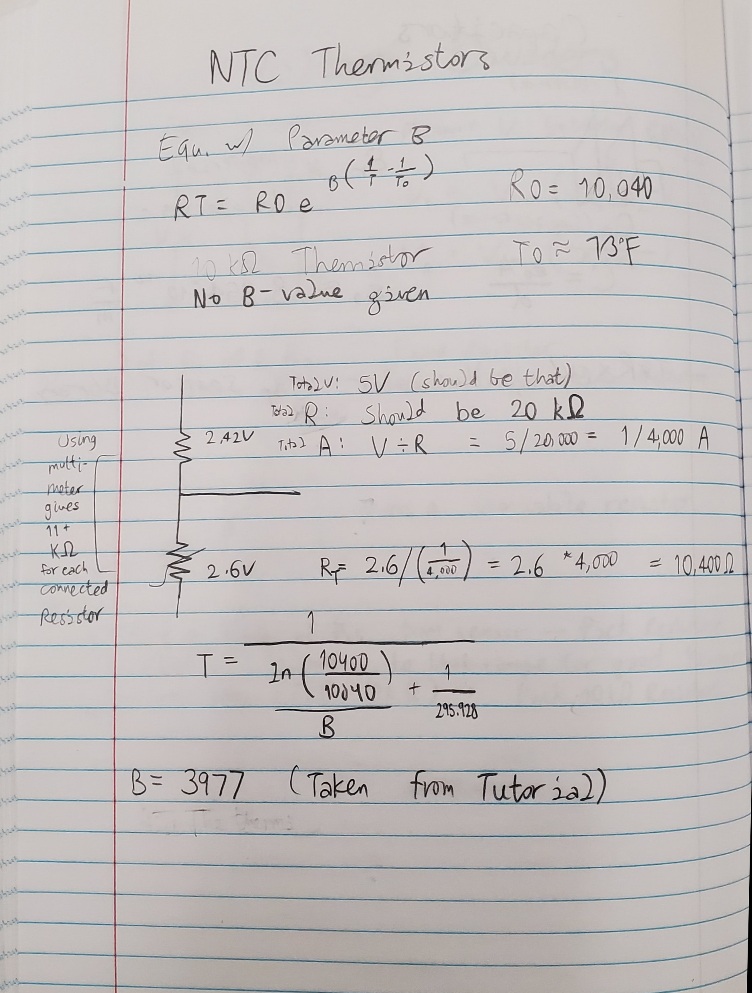 NTC Thermistors
Equ. w/ Parameter B
RT = R0 e^B(1/T - 1/To)
R0 = 10,040
10 kΩ Themistor
T0 ≈ 73°F
No B-value given
Total V: 5V (should be that)
Total R: Should be 20 kΩ
Total A: V ÷ R = 5/20,000 = 1/4,000 A
2.42V
Using
multi-
meter
gives
11+
kΩ
for each
connected
Resistor
2.6V
RT = 2.6/(1/4,000) = 2.6 * 4,000 = 10,400Ω
T = 1 / (ln(10400/10040)/B + 1/295.928)
B = 3977 (Taken from Tutorial)